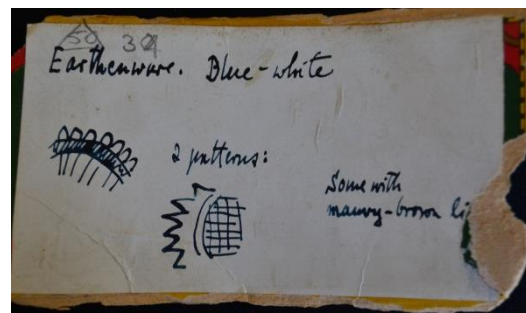 50 34
Earthenware. Blue-white
2 patterns:
Some with
mauvy-brown